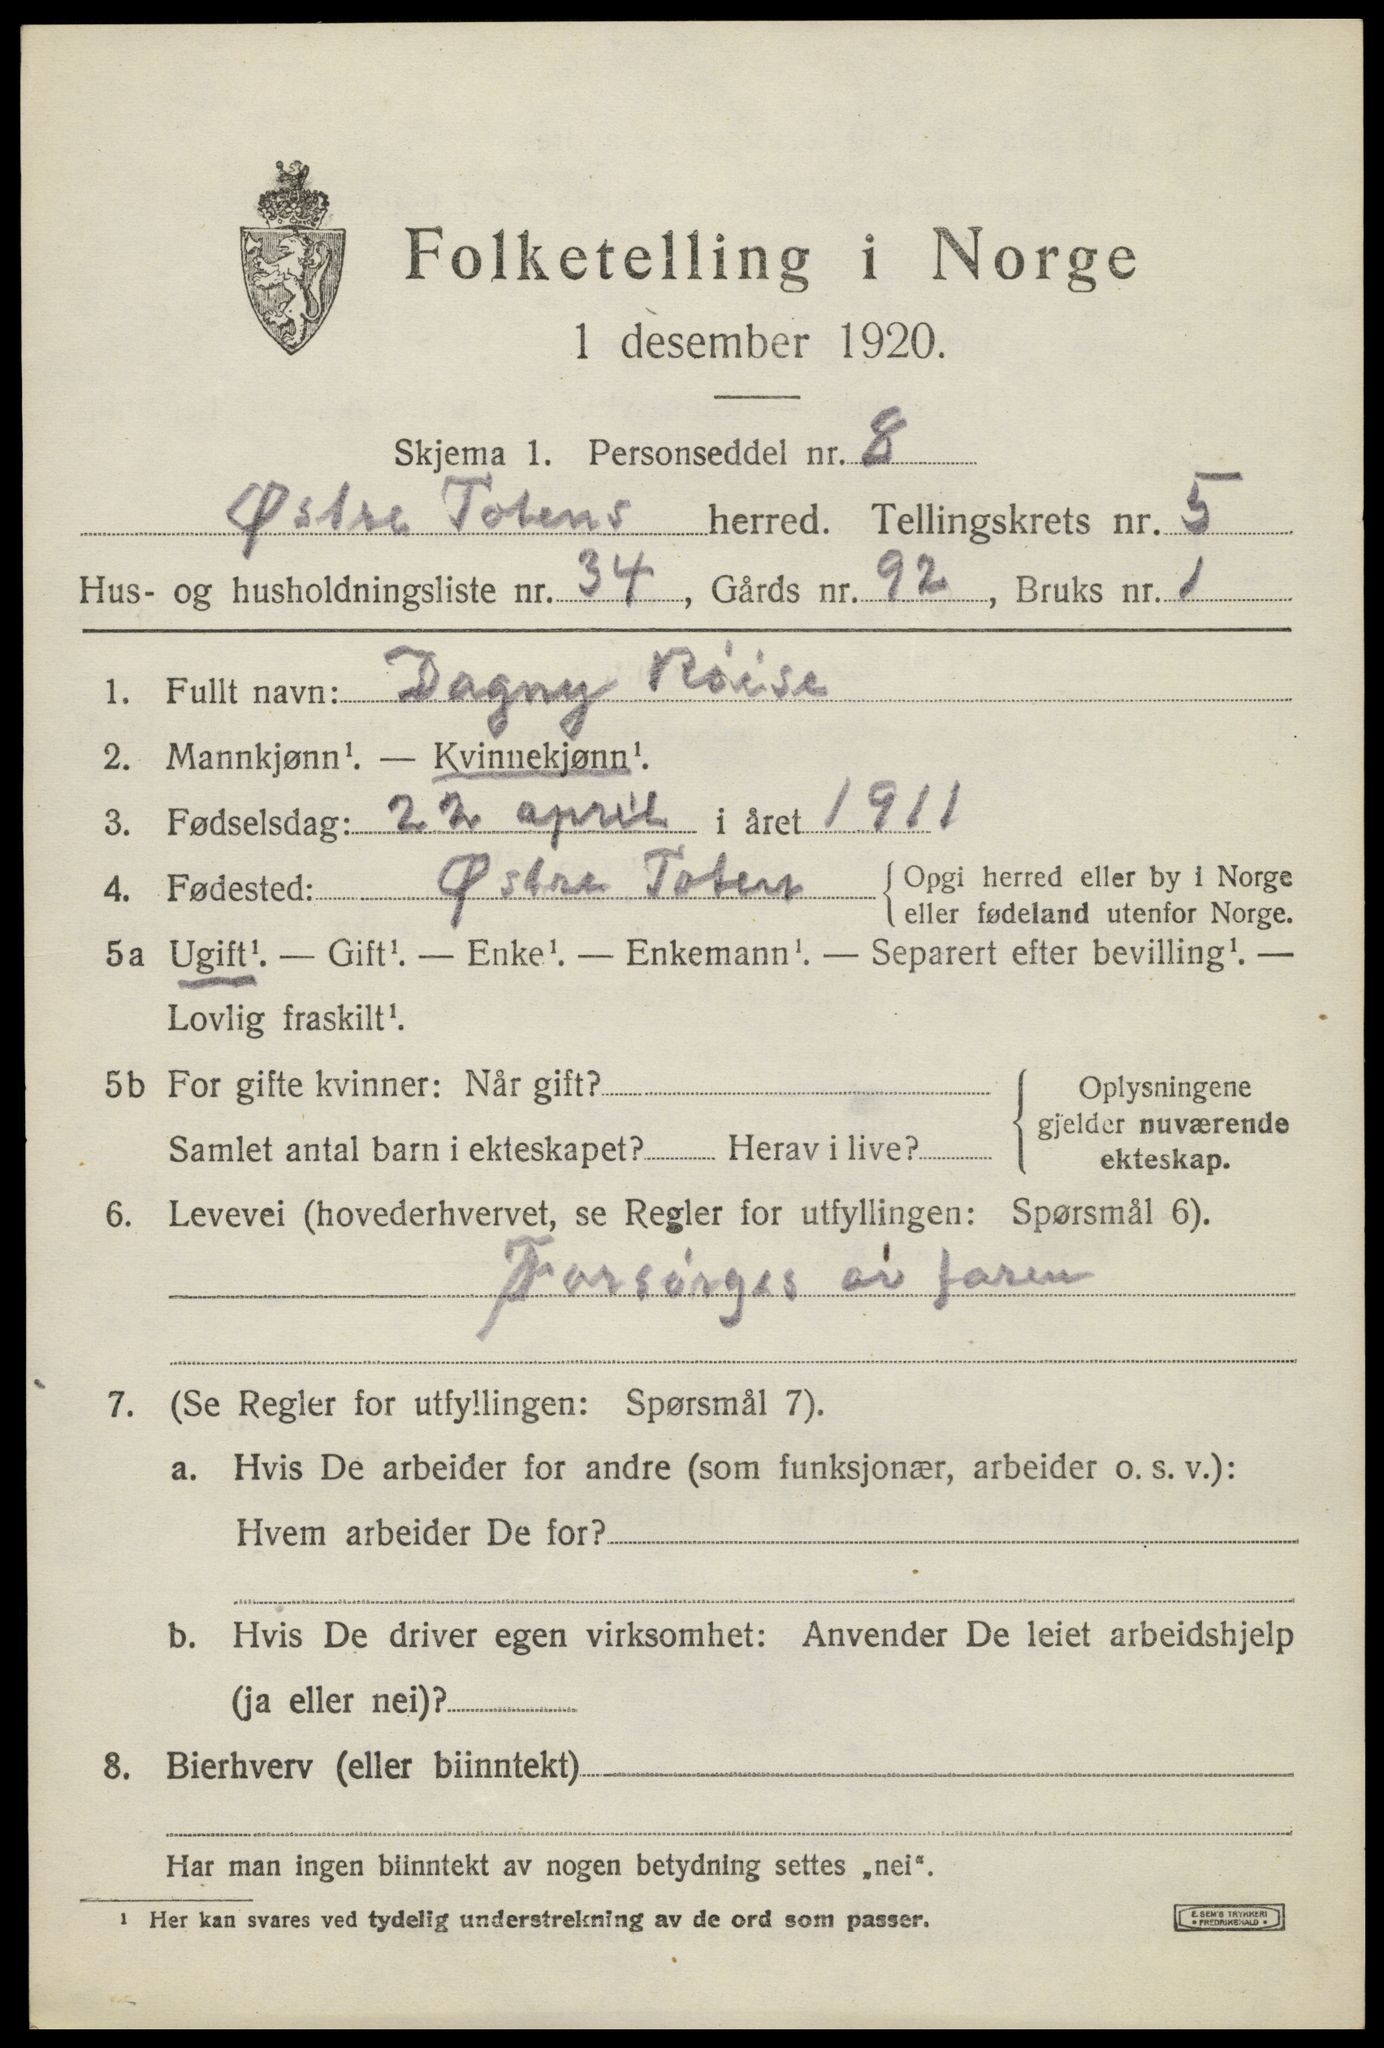 Folketelling i Norge
1 desember 1920.
Skjema 1. Personseddel nr. 8
Østre Totens herred. Tellingskrets nr. 5
Hus- og husholdningsliste nr. 34, Gårds nr. 92, Bruks nr. 1
1. Fullt navn: Dagny Röise
2. Mannkjønn¹. — Kvinnekjønn¹.
3. Fødselsdag: 22 april i året 1911
4. Fødested: Østre Toten {Opgi herred eller by i Norge
eller fødeland utenfor Norge.
5a Ugift¹. — Gift¹. — Enke¹. — Enkemann¹. — Separert efter bevilling¹. —
Lovlig fraskilt¹.
5b For gifte kvinner: Når gift?
Samlet antal barn i ekteskapet? Herav i live?
Oplysningene
gjelder nuværende
ekteskap.
6. Levevei (hovederhvervet, se Regler for utfyllingen: Spørsmål 6).
Forsörges av faren
7. (Se Regler for utfyllingen: Spørsmål 7).
a. Hvis De arbeider for andre (som funksjonær, arbeider o. s. v.):
Hvem arbeider De for?
b. Hvis De driver egen virksomhet: Anvender De leiet arbeidshjelp
(ja eller nei)?
8. Bierhverv (eller biinntekt)
Har man ingen biinntekt av nogen betydning settes „nei“.
¹ Her kan svares ved tydelig understrekning av de ord som passer.
E. SEM'S TRYKKERI
• FREDRIKSHALD •